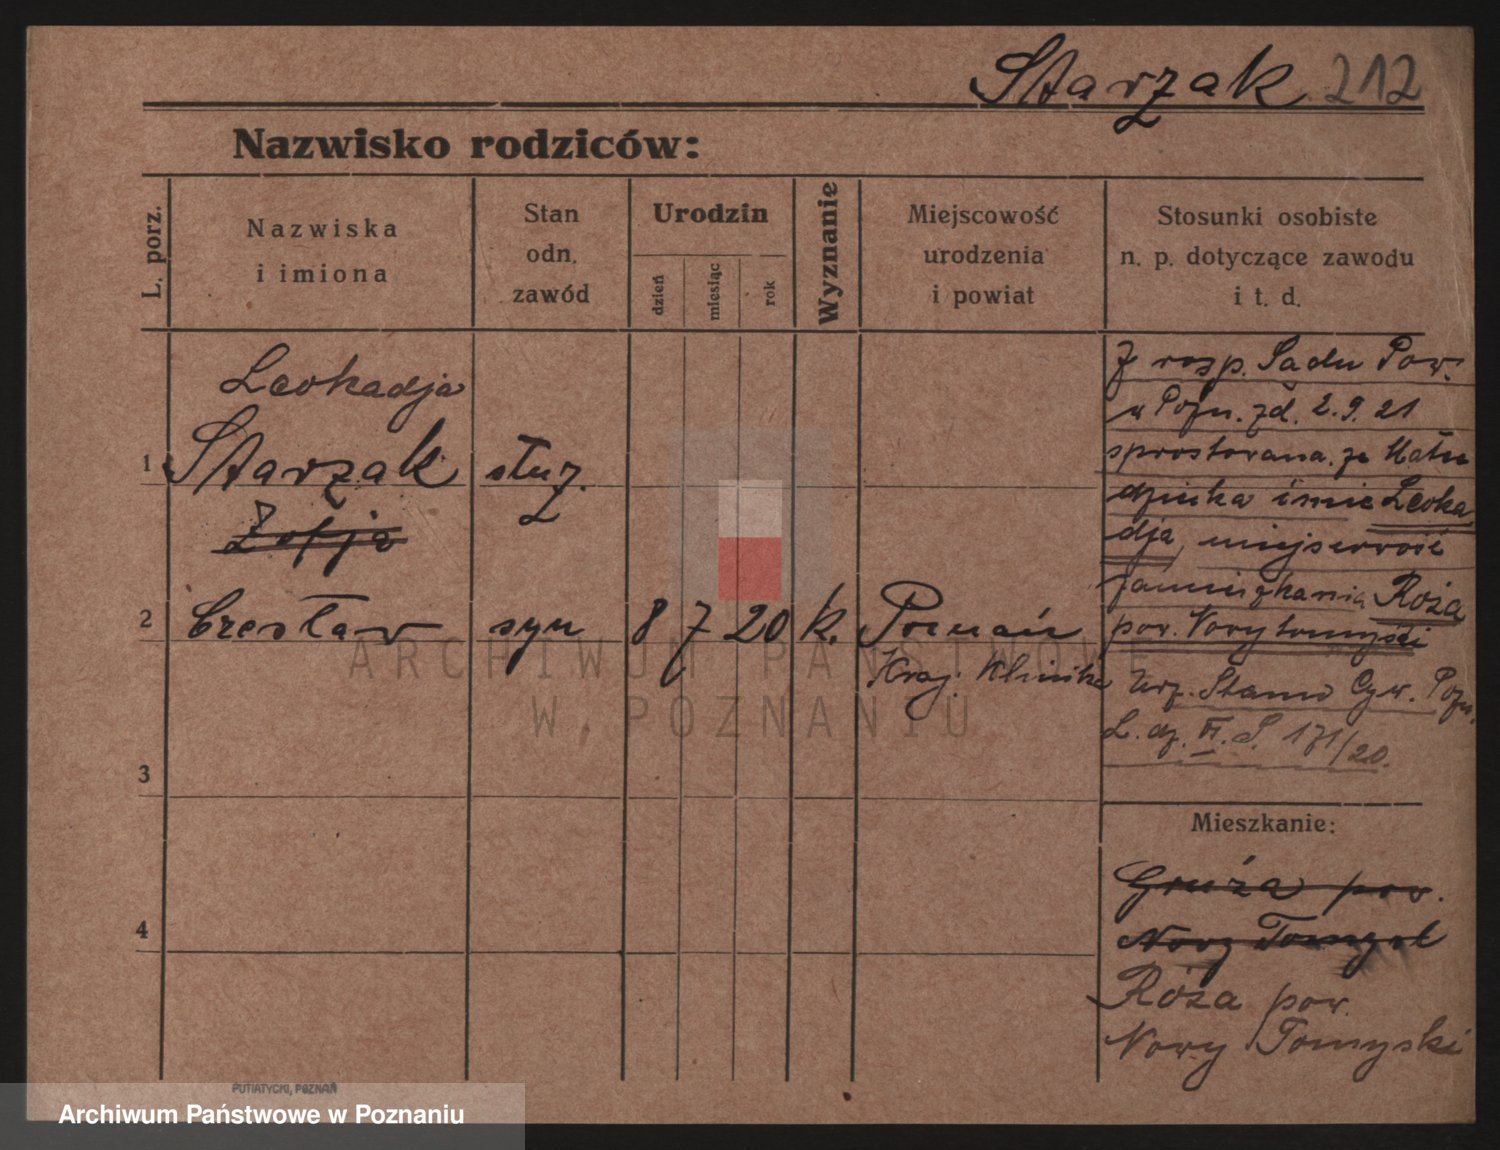 Starzak 212
Nazwisko rodziców:
L. porz.
Nazwiska
i imiona
Stan
odn.
zawód
Urodzin
dzień
miesiąc
rok
Wyznanie
Miejscowość
urodzenia
i powiat
Stosunki osobiste
n. p. dotyczące zawodu
i t. d.
Leokadja
1 Starzak służ.
Zofja
2 Czesław syn 8 7 20 k. Poznań
Kraj. Klinika
3
4
Z rosp. Sadu Pow.
w Pozn. zd. 2.9.21
sprostowana. ze
imie Leoka
dja, miejscowość
zamieszkania Róża
pow. Nowytomyski
Urz. Stanu Cyw. Pozn.
L. dz. VI. S. 171/20.
Mieszkanie:
Gruża pow.
Nowy Tomysl
Róża pow.
Nowy Tomyski
PUTIATYCKI, POZNAŃ
ARCHIWUM PAŃSTWOWE
W POZNANIU
Archiwum Państwowe w Poznaniu